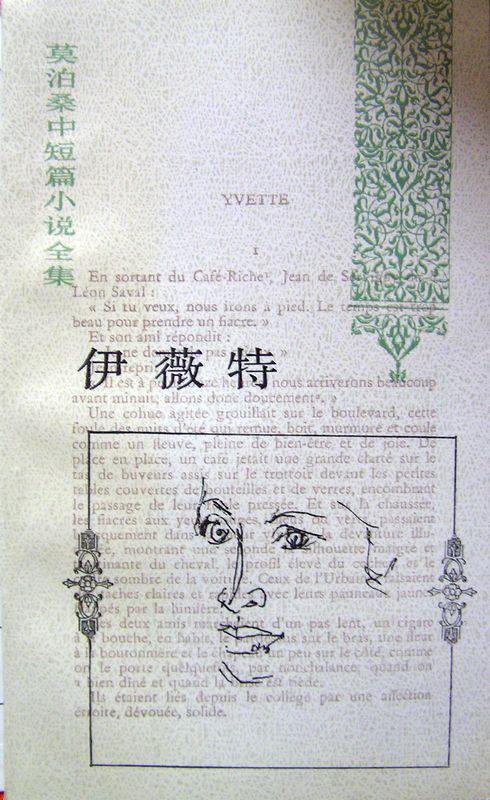 莫泊桑中短篇小说全集
YVETTE
I
En sortant du Café-Riche, Jean de
Léon Saval :
« Si tu veux, nous irons à pied. Le temps est trop
beau pour prendre un fiacre. »
Et son ami répondit :
伊薇特
nous arriverons beaucoup
avant minuit, allons donc doucement. »
Une cohue agitée grouillait sur le boulevard, cette
foule des nuits d'été qui remue, boit, murmure et coule
comme un fleuve, pleine de bien-être et de joie. De
place en place, un café jetait une grande clarté sur le
tas de buveurs assis sur le trottoir devant les petites
tables couvertes de bouteilles et de verres, encombrant
le passage de leur chaussée,
les fiacres aux passaient
dans devanture illu-
montrant une seconde silhouette maigre et
du cheval, profil élevé du et le
sombre de la voiture. Ceux de l'Urbaine faisaient
claires et avec leurs panneaux
par la lumière
deux amis d'un pas lent, un cigare
à bouche, en sur le bras, une fleur
à la boutonnière et le un peu sur le côté, comme
on le porte quelquefois, par nonchalance, quand on
a bien dîné et quand la est tiède.
Ils étaient liés depuis le collège par une affection
étroite, dévouée, solide.